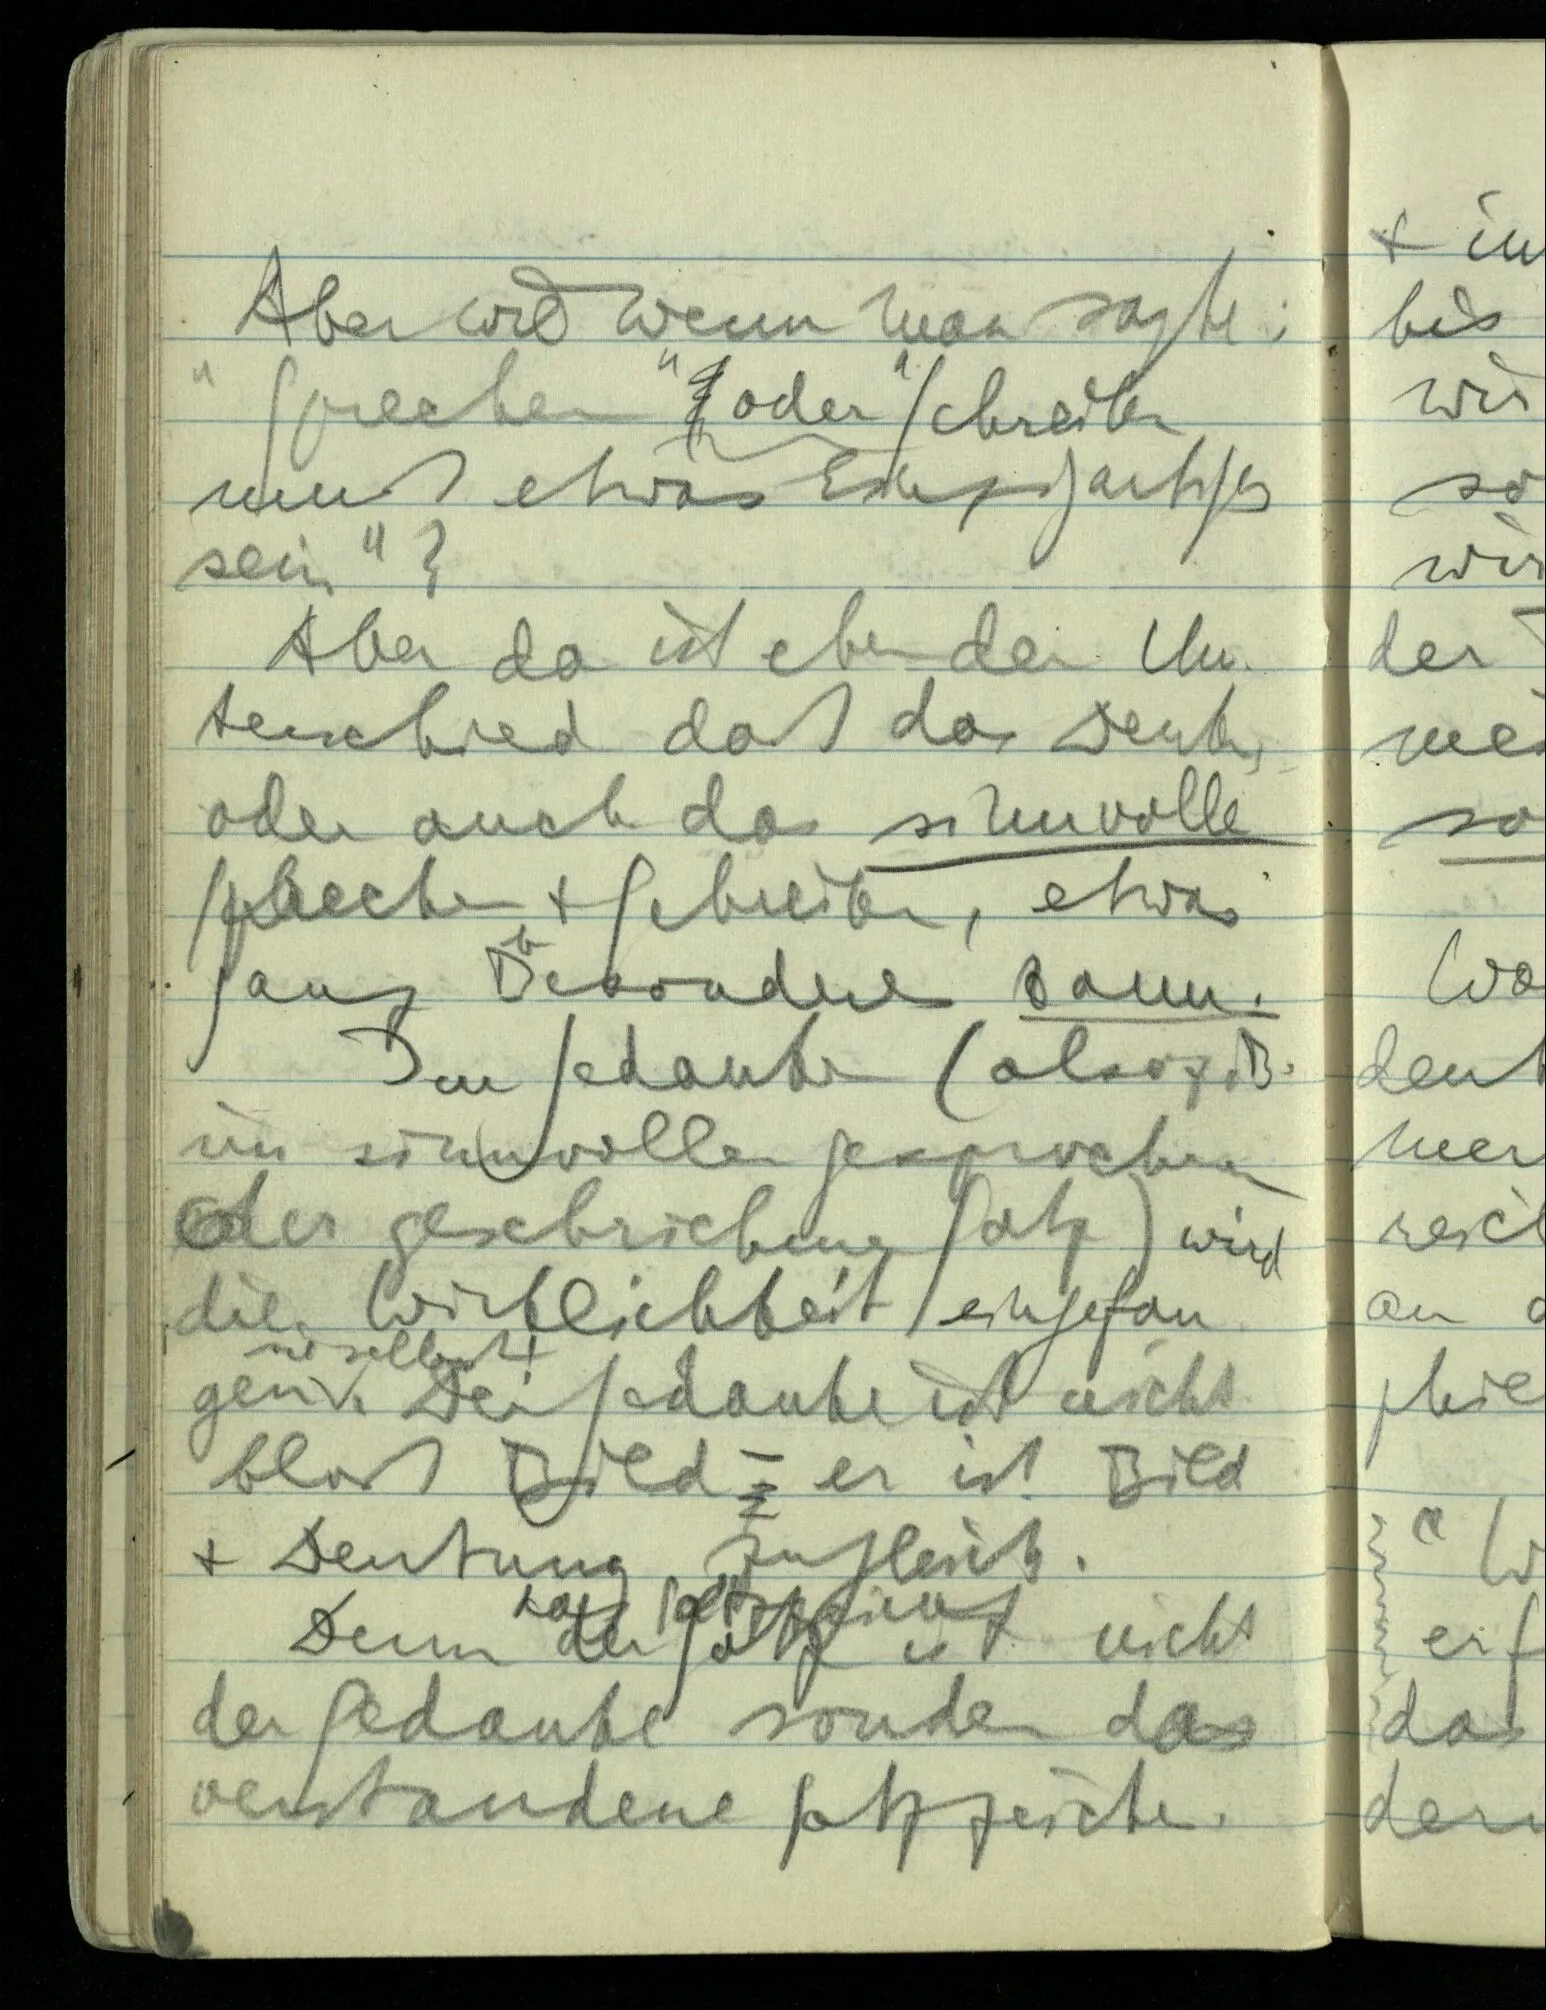 Aber wie wenn man sagte:
"Sprechen" oder "Schreiben
muß etwas Einzigartiges
sein"?
Aber da ist eben der Un-
terschied daß das Denken,
oder auch das sinnvolle
Sprechen + Schreiben, etwas
ganz Besonderes kann.
Im Gedanken (also z.B.
im sinnvollen gesprochenen
oder geschriebenen Satz) wird
die Wirklichkeit eingefan
sie selbst +
gen. Der Gedanke ist nicht
bloß Bild – er ist Bild
+ Deutung zugleich.
das Satzzeichen
Denn der Satz ist nicht
der Gedanke sondern das
verstandene Satzzeichen.
+ in
bis
wir
so
wir
der
mei
so
Wa
denk
mer
reich
an d
phil
"W
erf
das
dern